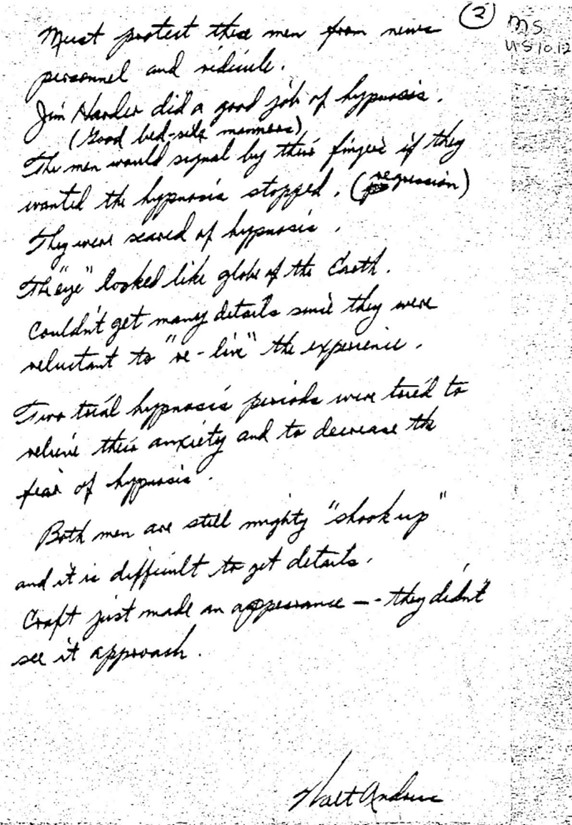 (2)
MS
US 10.12
Must protect these men from news
personnel and ridicule.
Jim Harder did a good job of hypnosis.
(Good bed-side manners)
The men would signal by their finger if they
wanted the hypnosis stopped. (regression)
They were scared of hypnosis.
The "eye" looked like globe of the Earth.
Couldn't get many details since they were
reluctant to "re-live" the experience.
Two trial hypnosis periods were tried to
relieve their anxiety and to decrease the
fear of hypnosis.
Both men are still mighty "shook up"
and it is difficult to get details.
Craft just made an appearance -- they didn't
see it approach.
Walt Andrus